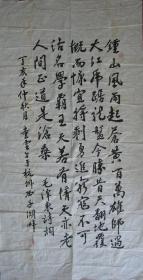 鍾山風雨起蒼黃百萬雄師過
大江虎踞龍盤今勝昔天翻地覆
慨而慷宜將剩勇追窮寇不可
沽名學霸王天若有情天亦老
人間正道是滄桑 毛澤東詩詞
丁亥年仲秋月 於杭州西子湖畔